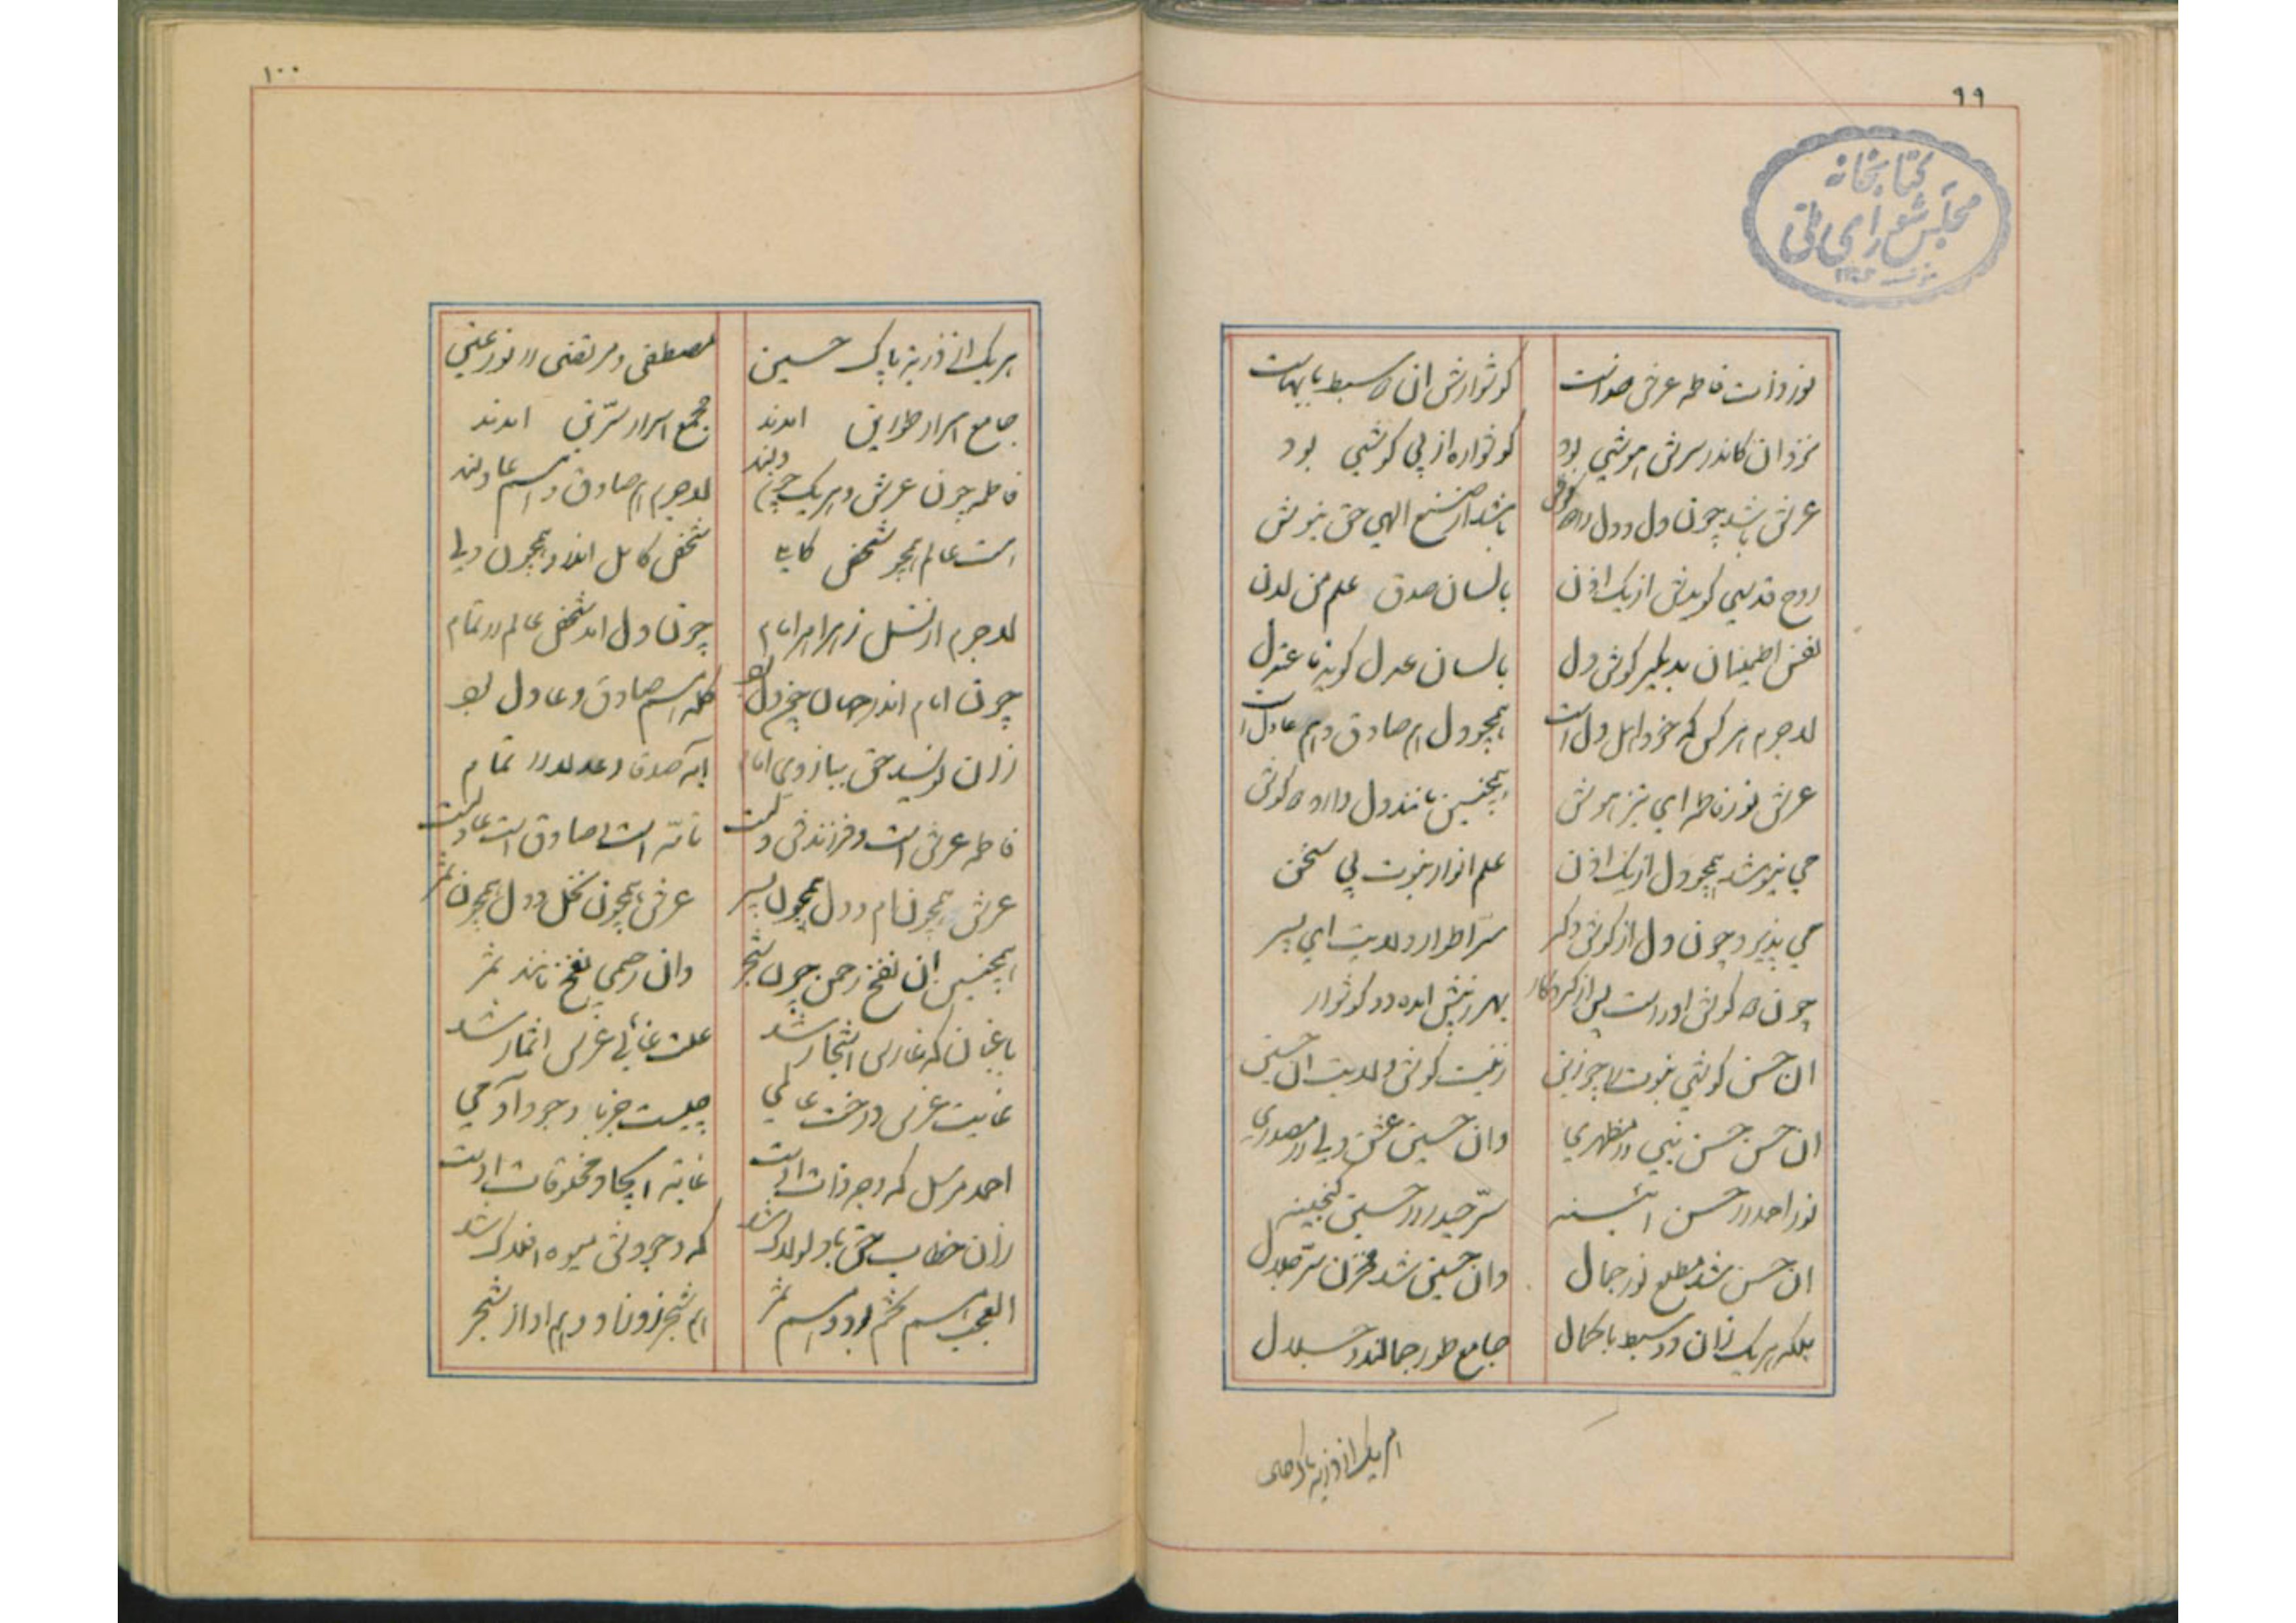 ٩٩
كتابخانه
مجلس شورای ملی
نور ذات فاطمه عرش خداست گوشوارش ان ۲ سبط با بهاست
نزد ان کاندر سرش هوشی بود گوشواره از پی گوشی بود
عرش باشد چون دل و دل را ۲ گوش باشد از صنع الهی حق نیوش
روح قدسی گویدش از یک اذن بالسان صدق علم من لدن
نفس اطمینان بدیگر گوش دل بالسان عدل گوید
لاجرم هر کس که خود اهل دل است همچو دل هم صادق و هم عادل است
عرش نور فاطمه ای تیزهوش همچنین مانند دل دارد ۲ گوش
می نیوشد همچو دل از یک اذن علم انوار نبوت بی سخن
می پذیرد چون دل از گوش دگر سر اطوار ولایت ای پسر
چون ۲ گوش او راست پس از کردگار بهر زینش امده دو گوشوار
ان حسن گوش نبوت را چو زین زینت گوش ولایت ان حسین
ان حسن حسن نبی را مظهری وان حسین عشق ولی را مصدری
نور احمد را حسن ائینه سر حیدر را حسین گنجینه
ان حسن شد مطلع نور جمال وان حسین شد مخزن سر جلال
بلکه هر یک زان دو سبط با کمال جامع طور جمالند و جلال
هر یک از ذریه پاک
١٠٠
هر یک از ذریه پاک حسین مصطفی و مرتضی را نور عین
جامع اسرار طوایق امدند مجمع اسرار امدند
فاطمه چون عرش و هر یک چون دلند لاجرم هم صادق و هم عادلند
است عالم همچو شخص کاملی شخص کامل اندر او همچون دلی
لاجرم از نسل زهرا هر امام چون دل امد شخص عالم را تمام
چون امام اندر جهان چون دل بود کلمه اسم صادق و عادل بود
زان نویسد حق ببازوی امام ایه صدقا و عدلا را تمام
فاطمه عرش است و فرزندش دلست صادق است عادلست
عرش همچون مام و دل همچون پسر عرش همچون نخل و دل همچون ثمر
همچنین ان نفخ رحمن چون شجر وان رحیمی نفخ مانند ثمر
باغبان که غارس اشجار شد علت غائی غرس اثمار شد
غایت غرس درخت عالمی چیست جز بار وجود آدمی
احمد مرسل که وجه ذات اوست غایه ایجاد مخلوقات اوست
زان خطاب حق باو لولاک شد که وجودش میوه افلاک شد
العجب هم تخم بود و هم ثمر هم شجر زو زاد و هم او از شجر